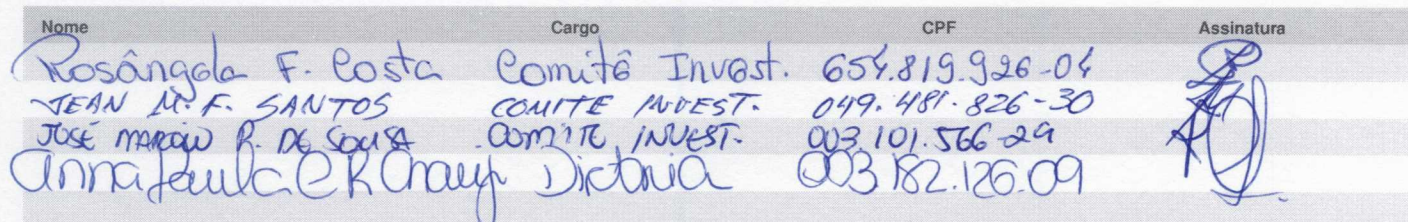 Nome Cargo CPF Assinatura
Rosângela F. Costa Comitê Invest. 654.819.926-04
JEAN M. F. SANTOS COMITE INVEST. 049.481.826-30
JOSÉ MARCIO R. DE SOUSA COMITE INVEST. 003.101.566-29
Anna Paula C R Diretoria 003.182.126.09